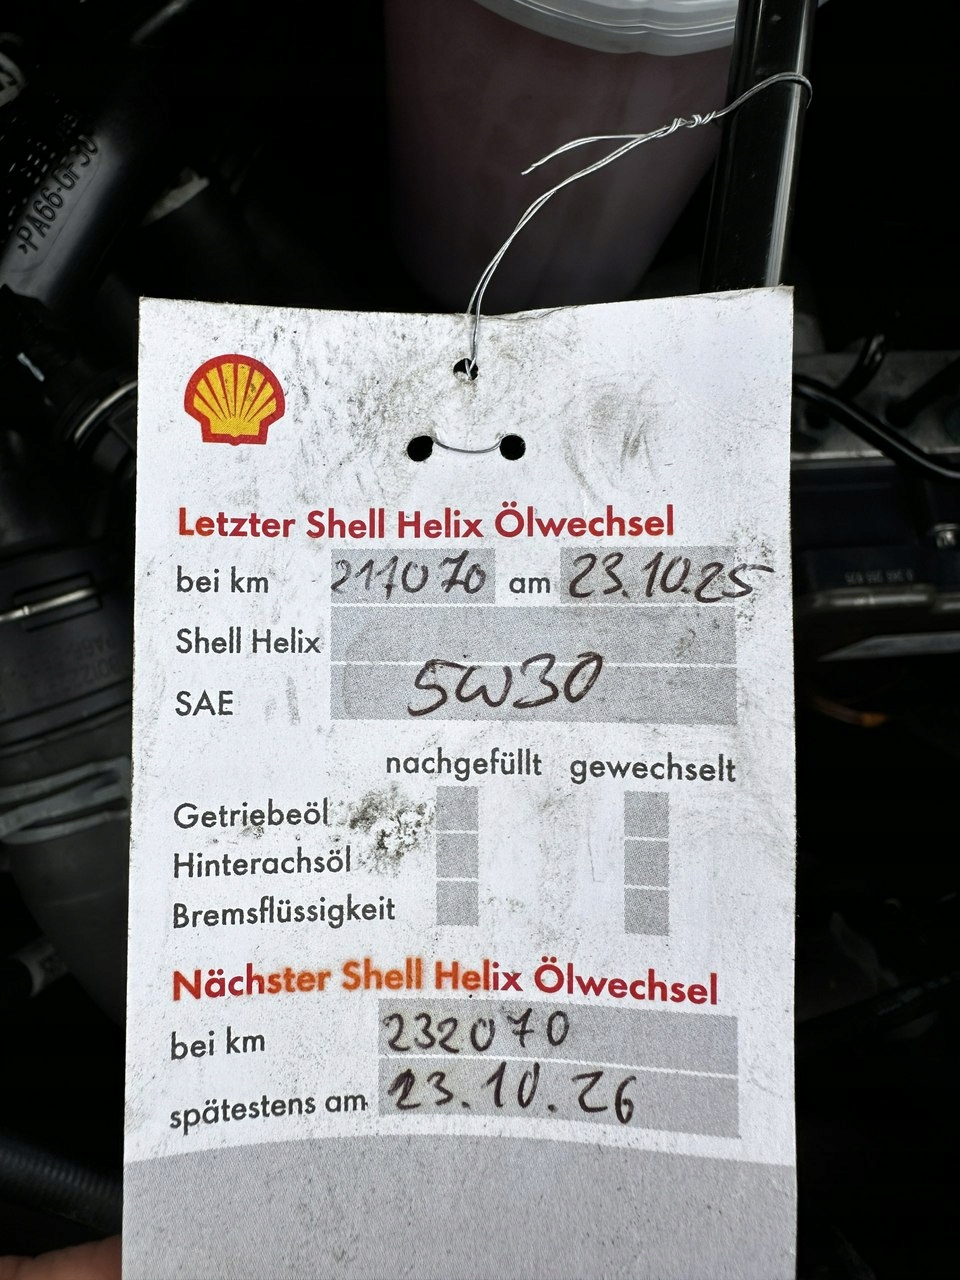 >PA66-GF30
Letzter Shell Helix Ölwechsel
bei km 217070 am 23.10.25
Shell Helix
SAE 5W30
nachgefüllt gewechselt
Getriebeöl
Hinterachsöl
Bremsflüssigkeit
Nächster Shell Helix Ölwechsel
bei km 232070
spätestens am 23.10.26